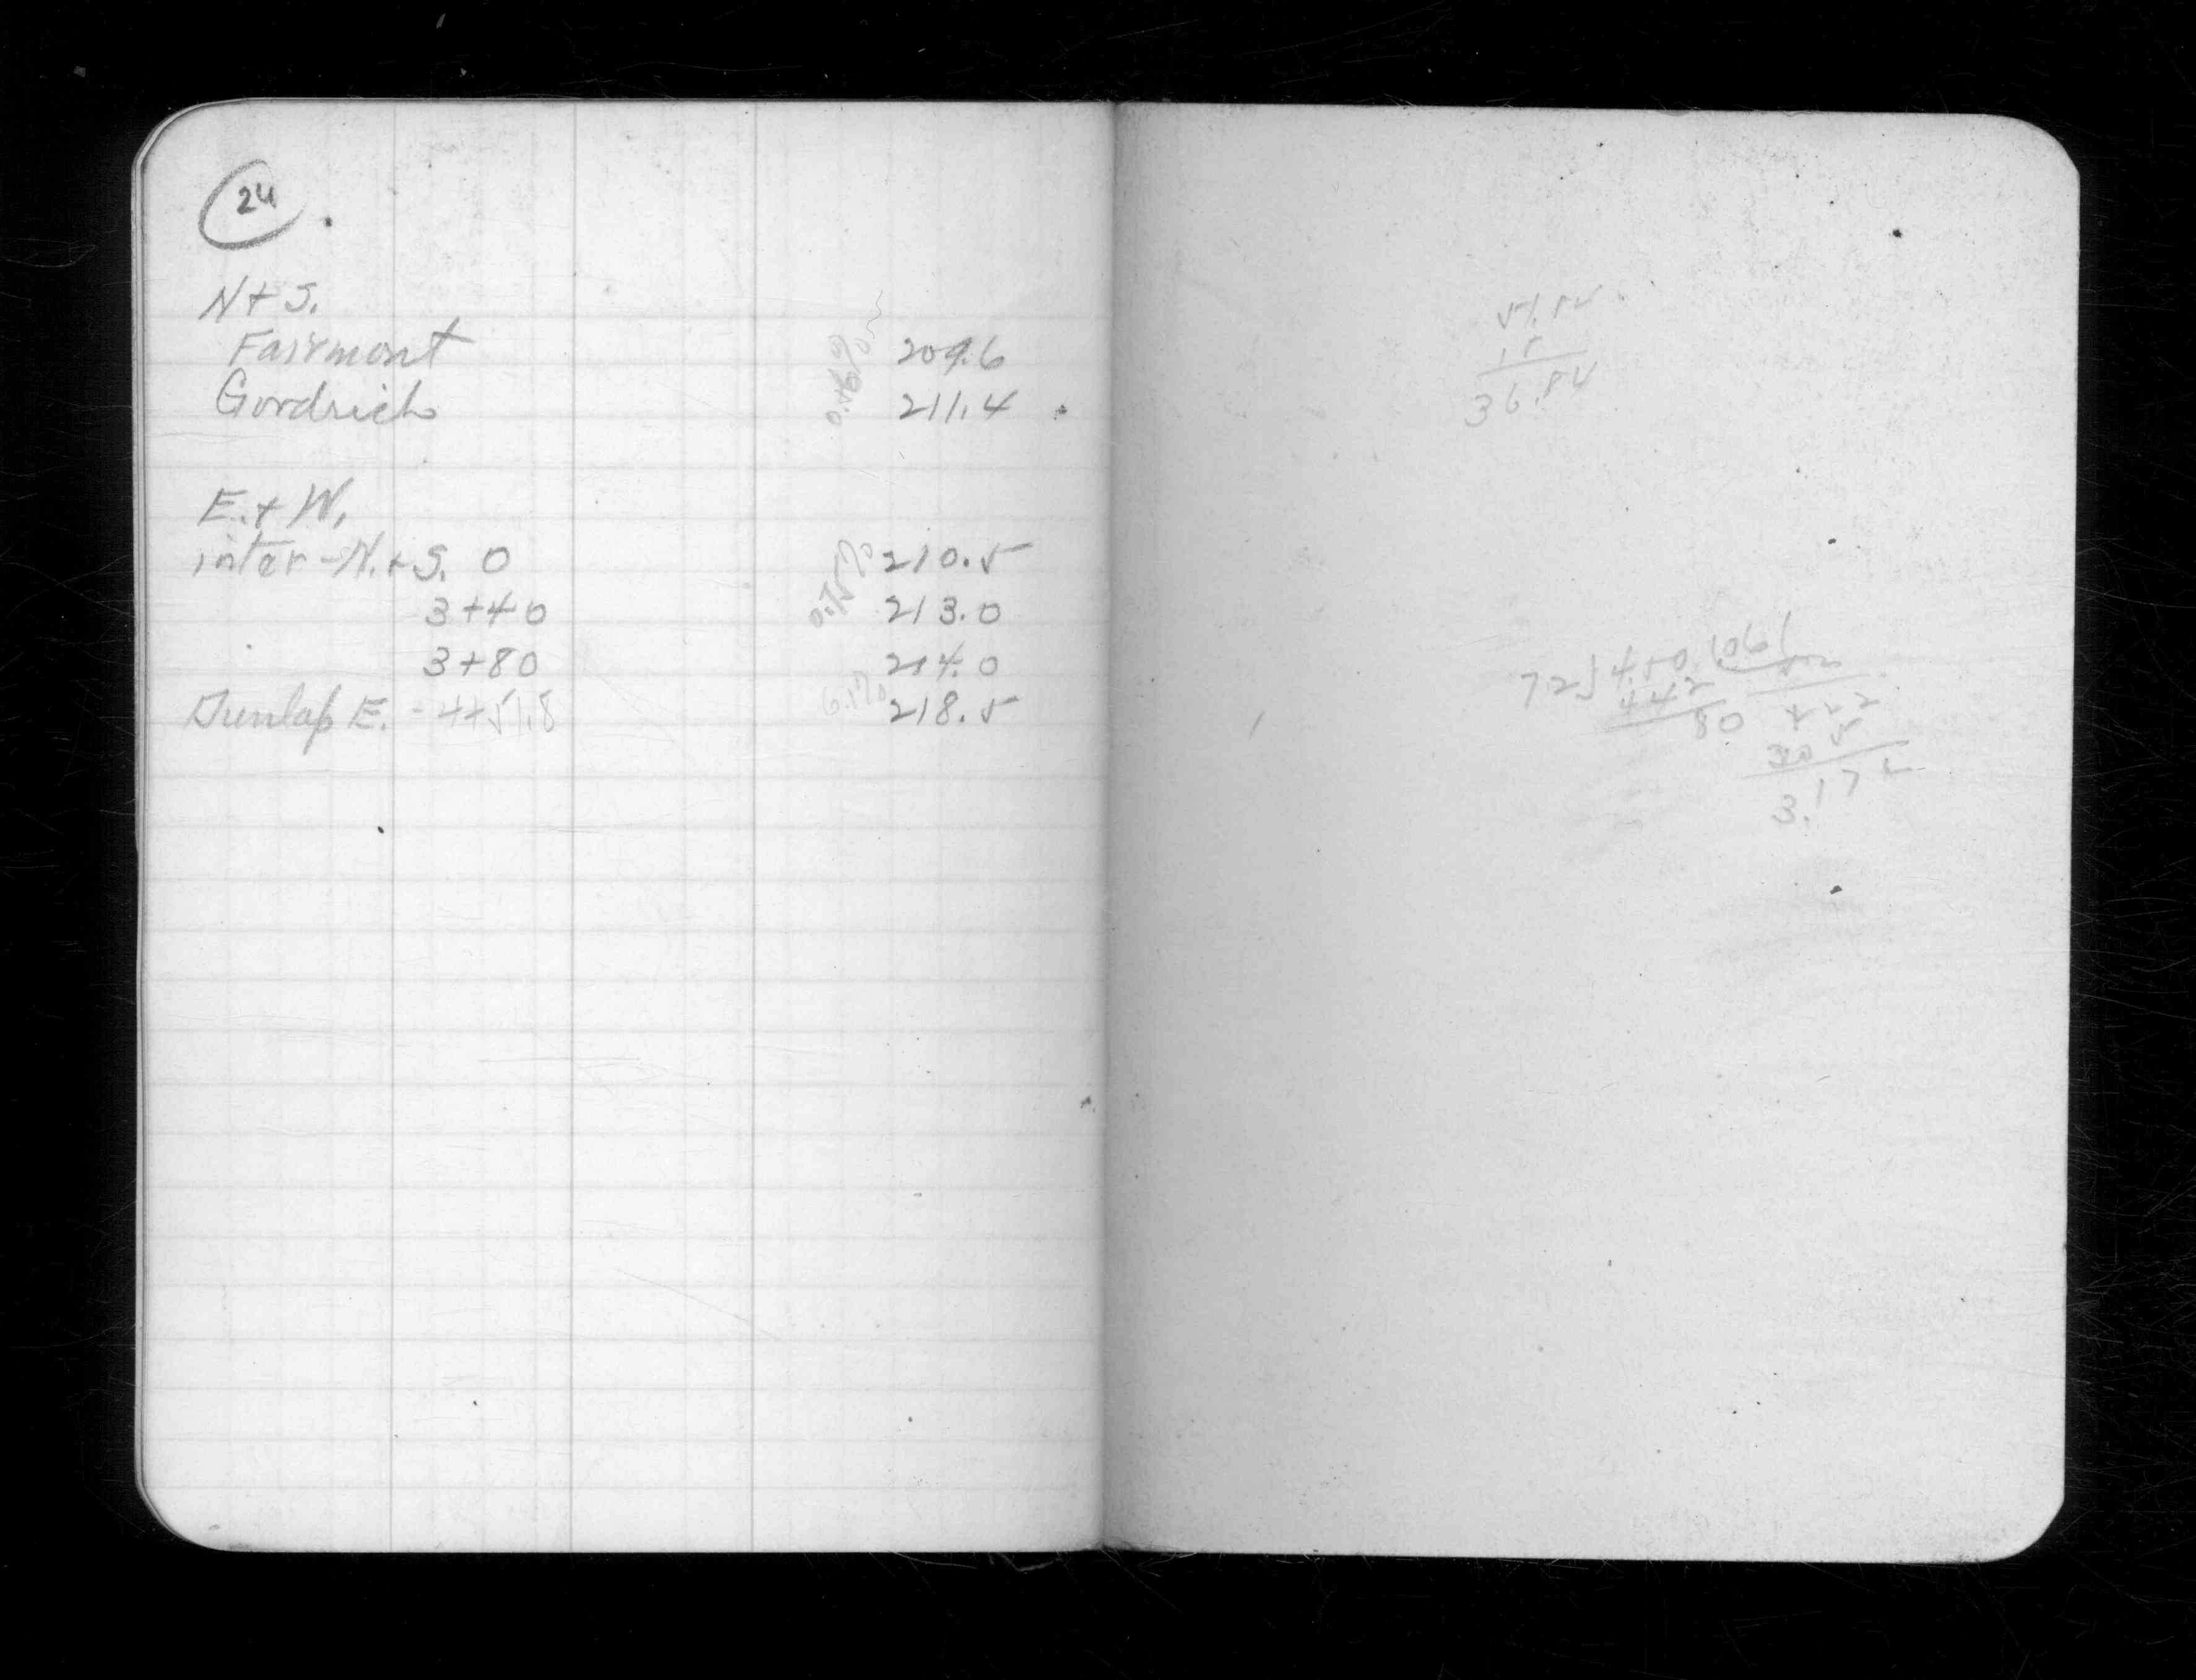 24
N+S.
Fairmont 209.6
Gordrich 0.46% 211.4
E.+W.
inter-N.+S. 0 210.5
3+40 0.75% 213.0
3+80 214.0
Dunlap E. - 4+51.8 6.1% 218.5
51.82
15
36.82
72)4.50(.061
442
80
3.172